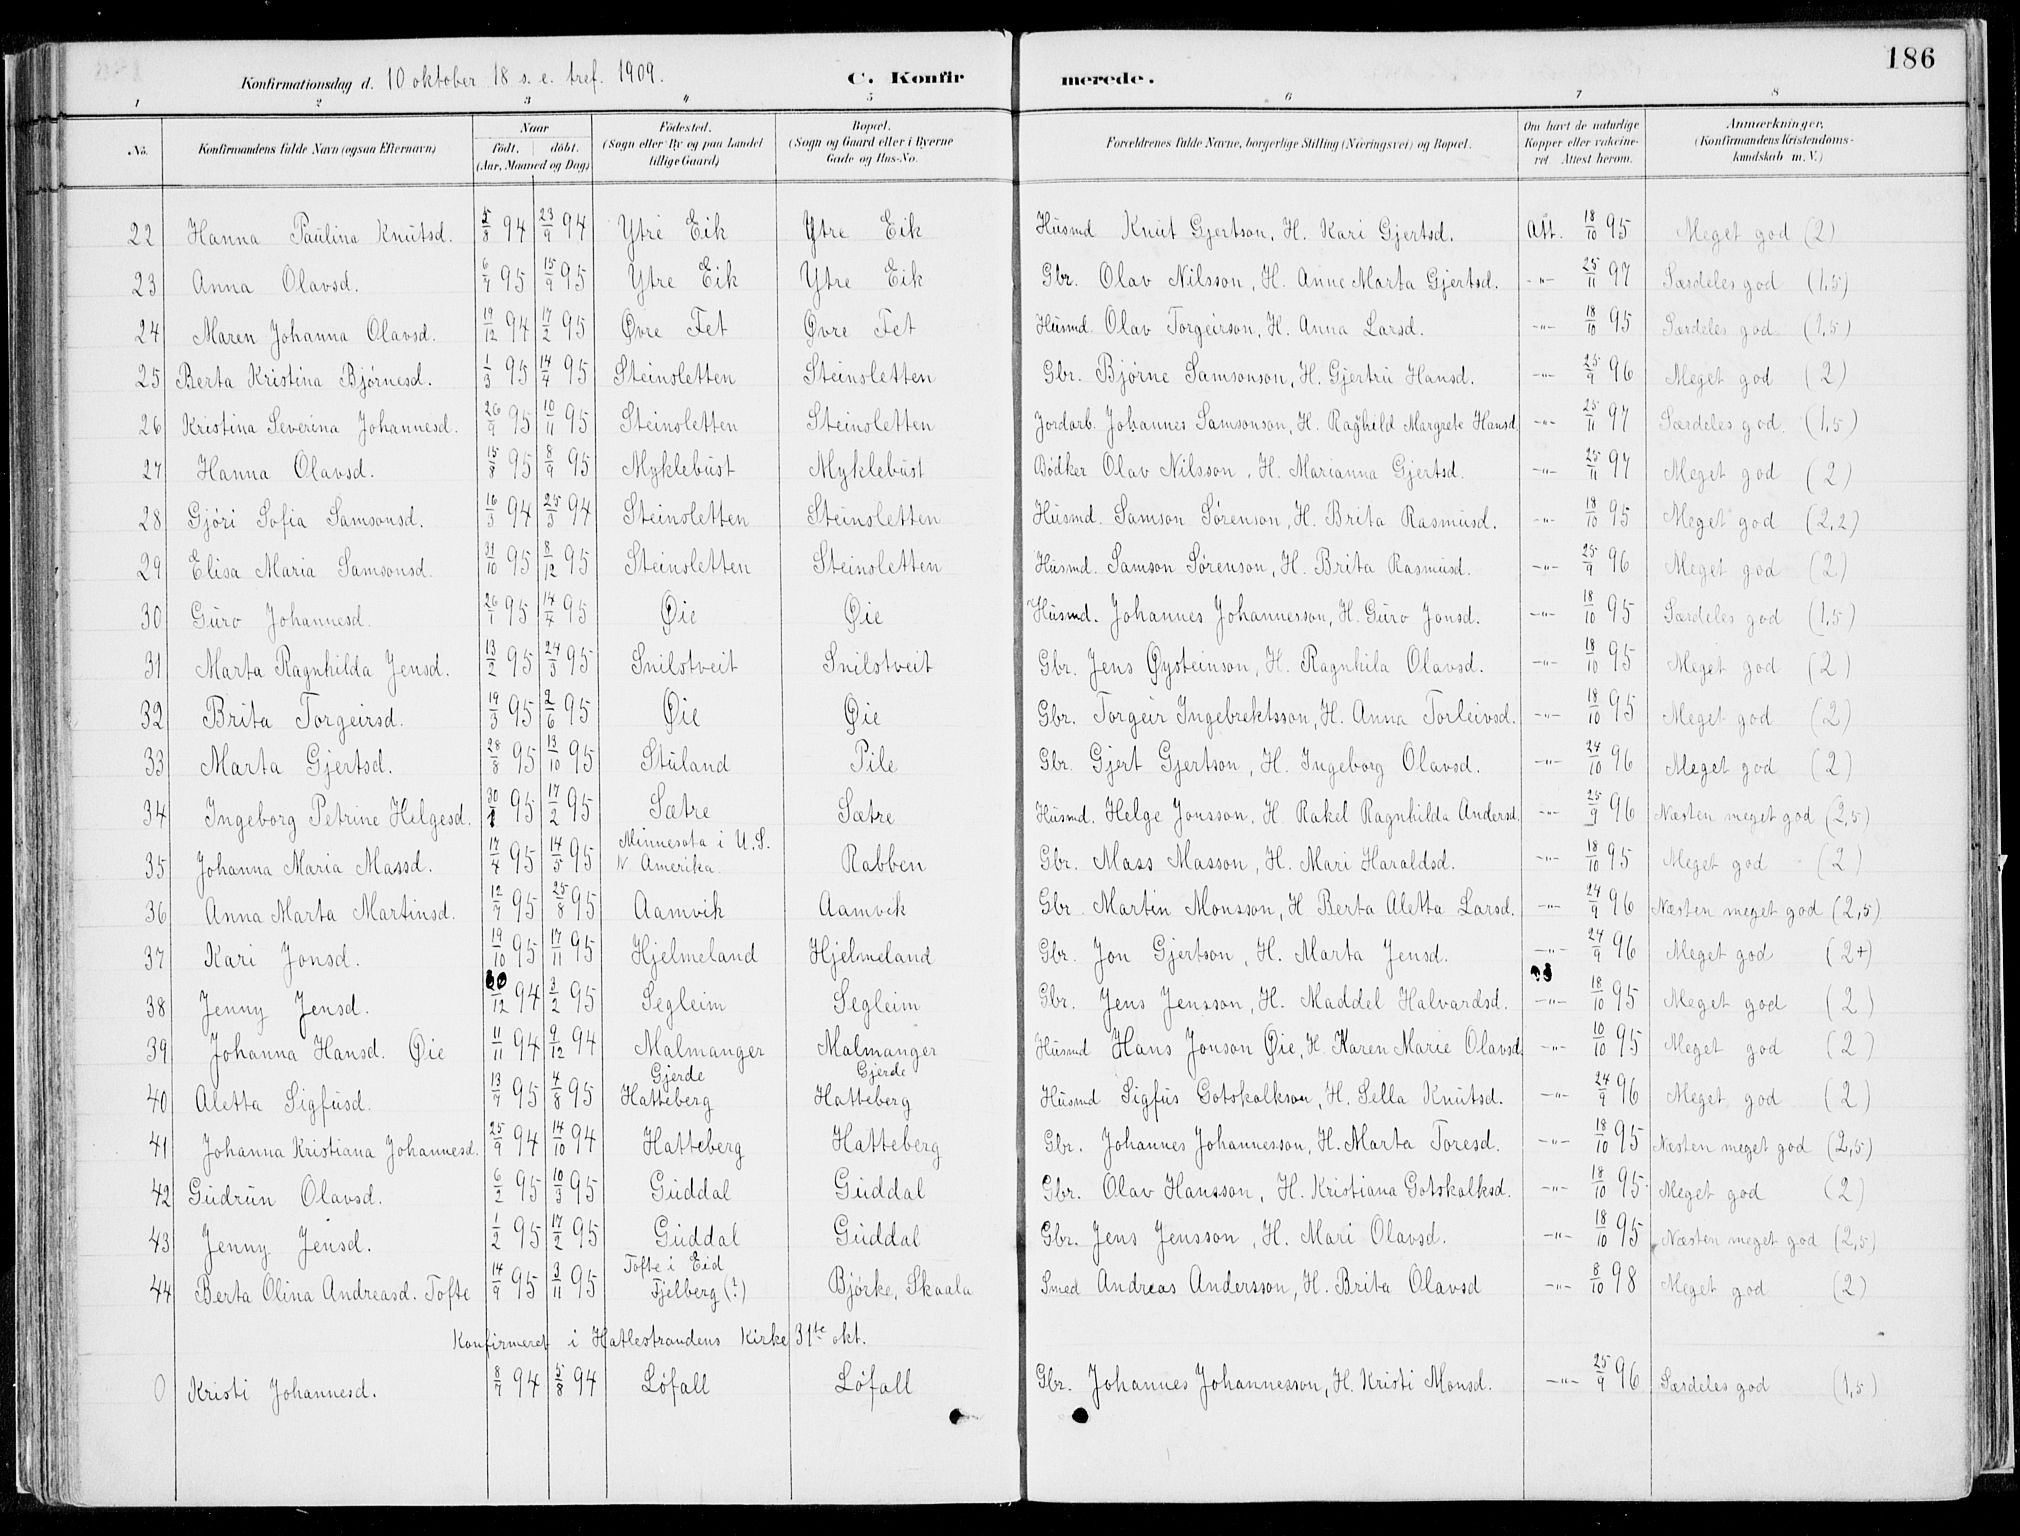 186
Konfirmationsdag d. 10 oktober 18 s. e. tref. 1909. C. Konfirmerede.
1 2 3 4 5 6 7 8
No. Konfirmandens fulde Navn (ogsaa Efternavn) Naar født, døbt. (Aar, Maaned og Dag) Fødested. (Sogn eller By og paa Landet tillige Gaard) Bopæl. (Sogn og Gaard eller i Byerne Gade og Hus-No. Forældrenes fulde Navne, borgerlige Stilling (Næringsvei) og Bopæl. Om havt de naturlige Kopper eller vakcineret Attest herom. Anmærkninger, (Konfirmandens Kristendomskundskab m. V.)
22 Hanna Paulina Knutsd. 5/8 94 23/9 94 Ytre Eik Ytre Eik Husmd Knut Gjertson, H. Kari Gjertsd. Att. 18/10 95 Meget god (2)
23 Anna Olavsd. 6/7 95 15/9 95 Ytre Eik Ytre Eik Gbr. Olav Nilsson, H. Anne Marta Gjertsd. -"- 25/11 97 Særdeles god (1,5)
24 Maren Johanna Olavsd. 19/12 94 17/2 95 Øvre Fet Øvre Fet Husmd. Olav Torgeirson, H. Anna Larsd. -"- 18/10 95 Særdeles god (1,5)
25 Berta Kristina Bjørnesd. 1/3 95 14/4 95 Steinsletten Steinsletten Gbr. Bjørne Samsonson, H. Gjertru Hansd. -"- 25/9 96 Meget god (2)
26 Kristina Severina Johannesd. 26/9 95 10/11 95 Steinsletten Steinsletten Jordarb. Johannes Samsonson, H. Raghild Margrete Hansd. -"- 25/11 97 Særdeles god. (1,5)
27 Hanna Olavsd. 15/8 95 8/9 95 Myklebust Myklebust Bødker Olav Nilsson, H. Marianna Gjertsd. -"- 25/11 97 Meget god (2)
28 Gjöri Sofia Samsonsd. 16/3 94 25/3 94 Steinsletten Steinsletten Husmd. Samson Sørenson, H. Brita Rasmusd. -"- 18/10 95 Meget god (2,2)
29 Elisa Maria Samsonsd. 31/10 95 8/12 95 Steinsletten Steinsletten Husmd. Samson Sørenson, H. Brita Rasmusd. -"- 25/9 96 Meget god (2)
30 Guro Johannesd. 26/1 95 14/4 95 Øie Øie Husmd. Johannes Johannesson, H. Guro Jonsd. -"- 18/10 95 Særdeles god (1,5)
31 Marta Ragnhilda Jensd. 13/2 95 24/3 95 Snilstveit Snilstveit Gbr. Jens Øysteinson, H. Ragnhila Olavsd. -"- 18/10 95 Meget god (2)
32 Brita Torgeirsd. 19/3 95 2/6 95 Øie Øie Gbr. Torgeir Ingebrektsson, H. Anna Torleivsd. -"- 18/10 95 Meget god (2)
33 Marta Gjertsd. 28/8 95 13/10 95 Stuland Pile Gbr. Gjert Gjertson, H. Ingeborg Olavsd. -"- 24/10 96 Meget god (2)
34 Ingeborg Petrine Helgesd. 30/1 95 17/2 95 Sætre Sætre Husmd. Helge Jonsson, H. Rakel Ragnhilda Andersd. -"- 25/9 96 Næsten meget god (2,5)
35 Johanna Maria Massd. 17/4 95 14/5 95 Minnesota i U.S. N Amerika Rabben Gbr. Mass Masson, H. Mari Haraldsd. -"- 18/10 95 Meget god (2)
36 Anna Marta Martinsd. 12/7 95 25/8 95 Aamvik Aamvik Gbr. Martin Monsson, H Berta Aletta Larsd. -"- 24/9 96 Næsten meget god (2,5)
37 Kari Jonsd. 19/10 95 17/11 95 Hjelmeland Hjelmeland Gbr. Jon Gjertson, H. Marta Jensd. -"- 24/9 96 Meget god (2+)
38 Jenny Jensd. 20/12 94 3/2 95 Segleim Segleim Gbr. Jens Jensson, H. Maddel Halvardsd. -"- 18/10 95 Meget god (2)
39 Johanna Hansd. Øie 11/11 94 9/12 94 Malmanger Malmanger Husmd Hans Jonson Øie, H. Karen Marie Olavsd. -"- 10/10 95 Meget god (2)
40 Aletta Sigfusd. 13/7 95 4/8 95 Gjerde Hatteberg Gjerde Hatteberg Husmd Sigfus Gotskalkson, H. Sella Knutsd. -"- 24/9 96 Meget god (2)
41 Johanna Kristiana Johannesd. 25/9 94 14/10 94 Hatteberg Hatteberg Gbr. Johannes Johannesson, H. Marta Toresd. -"- 18/10 95 Næsten meget god (2,5)
42 Gudrun Olavsd. 6/2 95 10/3 95 Guddal Guddal Gbr. Olav Hansson, H. Kristiana Gotskalksd. -"- 18/10 95 Meget god (2)
43 Jenny Jensd. 1/2 95 17/2 95 Guddal Guddal Gbr. Jens Jensson, H. Mari Olavsd. -"- 18/10 95 Næsten meget god (2,5)
44 Berta Olina Andreasd. Tofte 14/9 95 3/11 95 Tofte i Eid Fjelberg (?) Bjørke, Skaala Smed Andreas Andersson, H. Brita Olavsd -"- 8/10 98 Meget god (2)
Konfirmeret i Hatlestrandens Kirke 31te okt.
0 Kristi Johannesd. 8/7 94 5/8 94 Løfall Løfall Gbr. Johannes Johannesson, H. Kristi Monsd. -"- 25/9 96 Særdeles god (1,5)